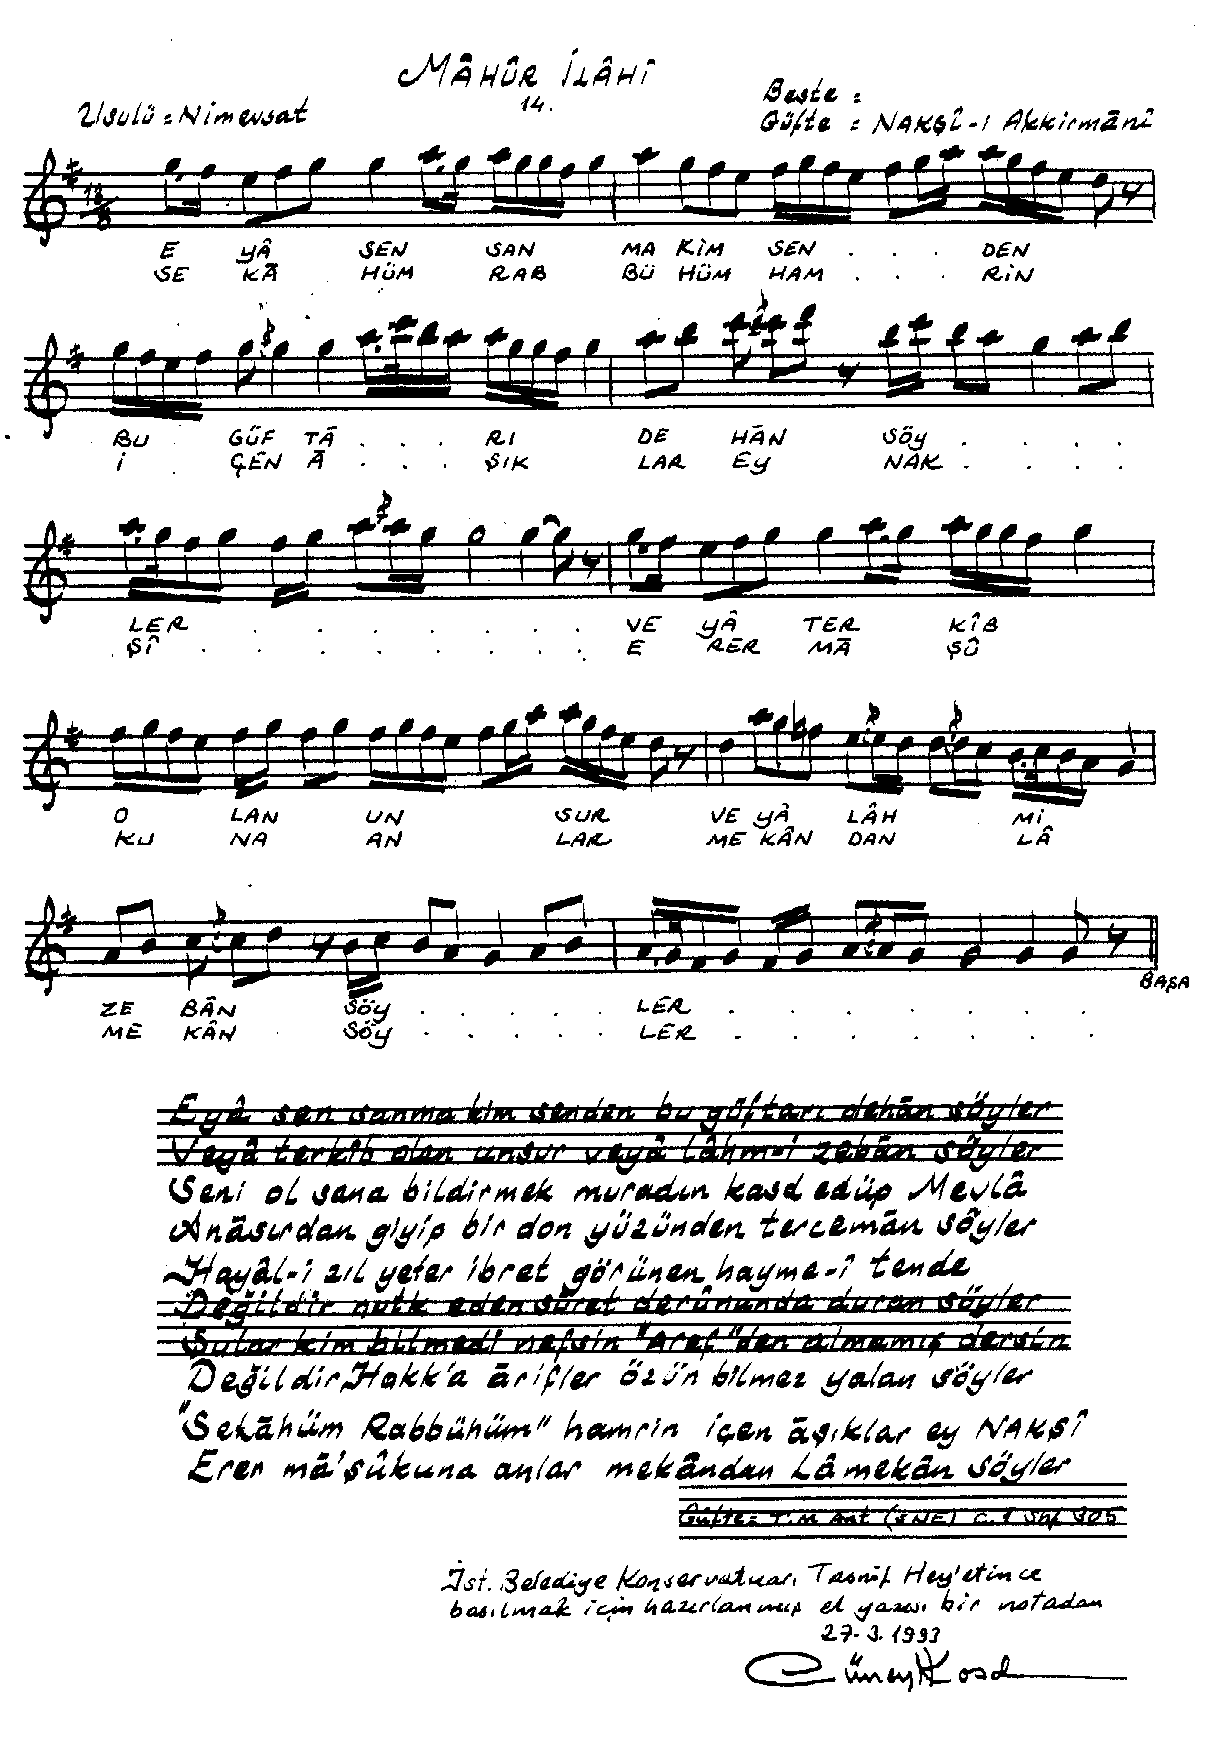 MÂHÛR İLÂHÎ
14.
Usulü = Nimevsat
Beste :
Güfte : NAKŞÎ-i Akkirmānî
E YÂ SEN SAN MA KİM SEN . . . DEN
SE KĀ HÜM RAB BÜ HÜM HAM . . . RİN
BU GÜF TĀ . . . RI DE HĀN SÖY . . . .
İ ÇEN Ā . . . ŞIK LAR EY NAK . . . .
LER . . . . . . . VE YÂ TER KÎB
ŞÎ . . . . . . . . E RER MĀ ŞÛ
O LAN UN SUR VE YÂ LÂH Mİ
KU NA AN LAR ME KÂN DAN LÂ
ZE BÂN SÖY . . . . LER . . . . . . .
ME KÂN SÖY . . . . LER . . . . . . .
BAŞA
Eyâ sen sanma kim senden bu göftarı dehān söyler
Veyâ terkîb olan unsur veyâ lâhm-i zebān söyler
Seni ol sana bildirmek muradın kasd edüp Mevlâ
Anāsırdan giyip bir don yüzünden tercemān söyler
Hayâl-i zıl yeter ibret görünen hayme-î tende
Değildir nutk eden sûret derûnunda duran söyler
Şular kim bilmedi nefsin "Aref"den almamış dersin
Değildir Hakk'a ārifler özün bilmez yalan söyler
"Sekāhüm Rabbühüm" hamrin içen āşıklar ey NAKŞÎ
Erer mā'şûkuna anlar mekândan Lâmekân söyler
Güfte= T.M Ant (SNE) C.1 Saf 305
İst. Belediye Konservatuarı Tasnif Hey'etince
basılmak için hazırlanmış el yazısı bir notadan
27-3.1993
Cüneyt Kosal